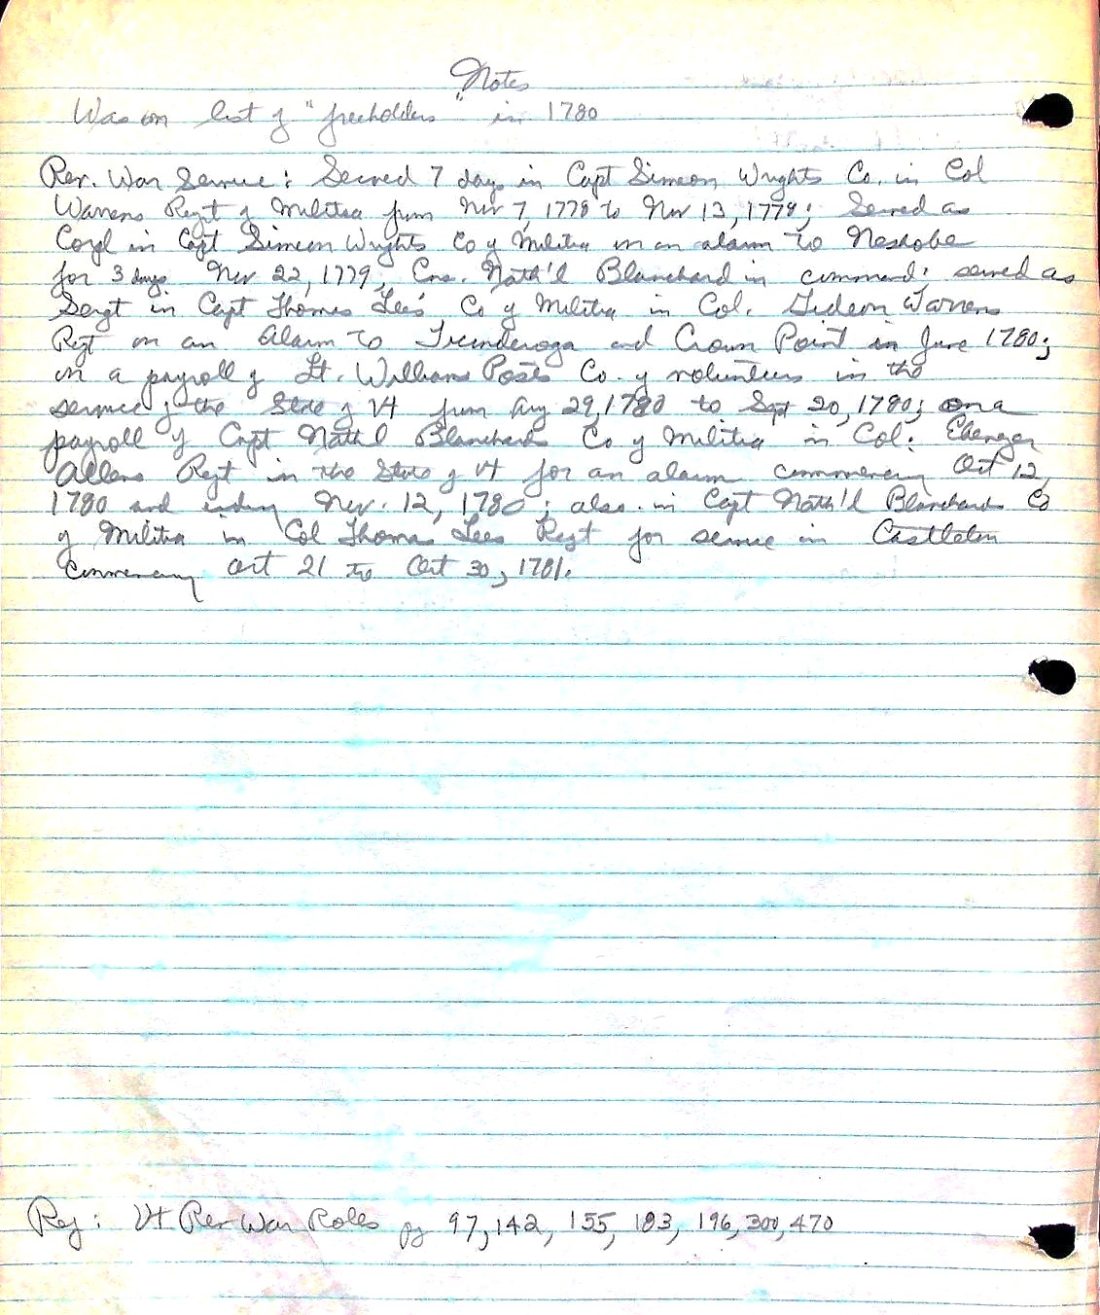 Notes
Was on list of "freeholders" in 1780
Rev. War Service: Served 7 days in Capt Simeon Wrights Co. in Col
Warrens Regt of Militia from Nov 7, 1778 to Nov 13, 1778; Served as
Corpl in Capt Simeon Wrights Co of Militia in an alarm to Neshobe
for 3 days Nov 22, 1779, Ens. Nath'l Blanchard in command; served as
Sergt in Capt Thomas Lee's Co of Militia in Col. Gideon Warrens
Regt on an Alarm to Ticonderoga and Crown Point in June 1780;
on a payroll of Lt. Williams Posts Co. of volunteers in the
service of the State of Vt from Aug 29, 1780 to Sept 20, 1780; on a
payroll of Capt Nath'l Blanchards Co of Militia in Col. Ebenezer
Allens Regt in the State of Vt for an alarm commencing Oct 12,
1780 and ending Nov. 12, 1780; also in Capt Nath'l Blanchards Co
of Militia in Col Thomas Lees Regt for service in Castleton
Commencing Oct 21 to Oct 30, 1781.
Ref: Vt Rev War Rolls pg 97, 142, 155, 183, 196, 300, 470